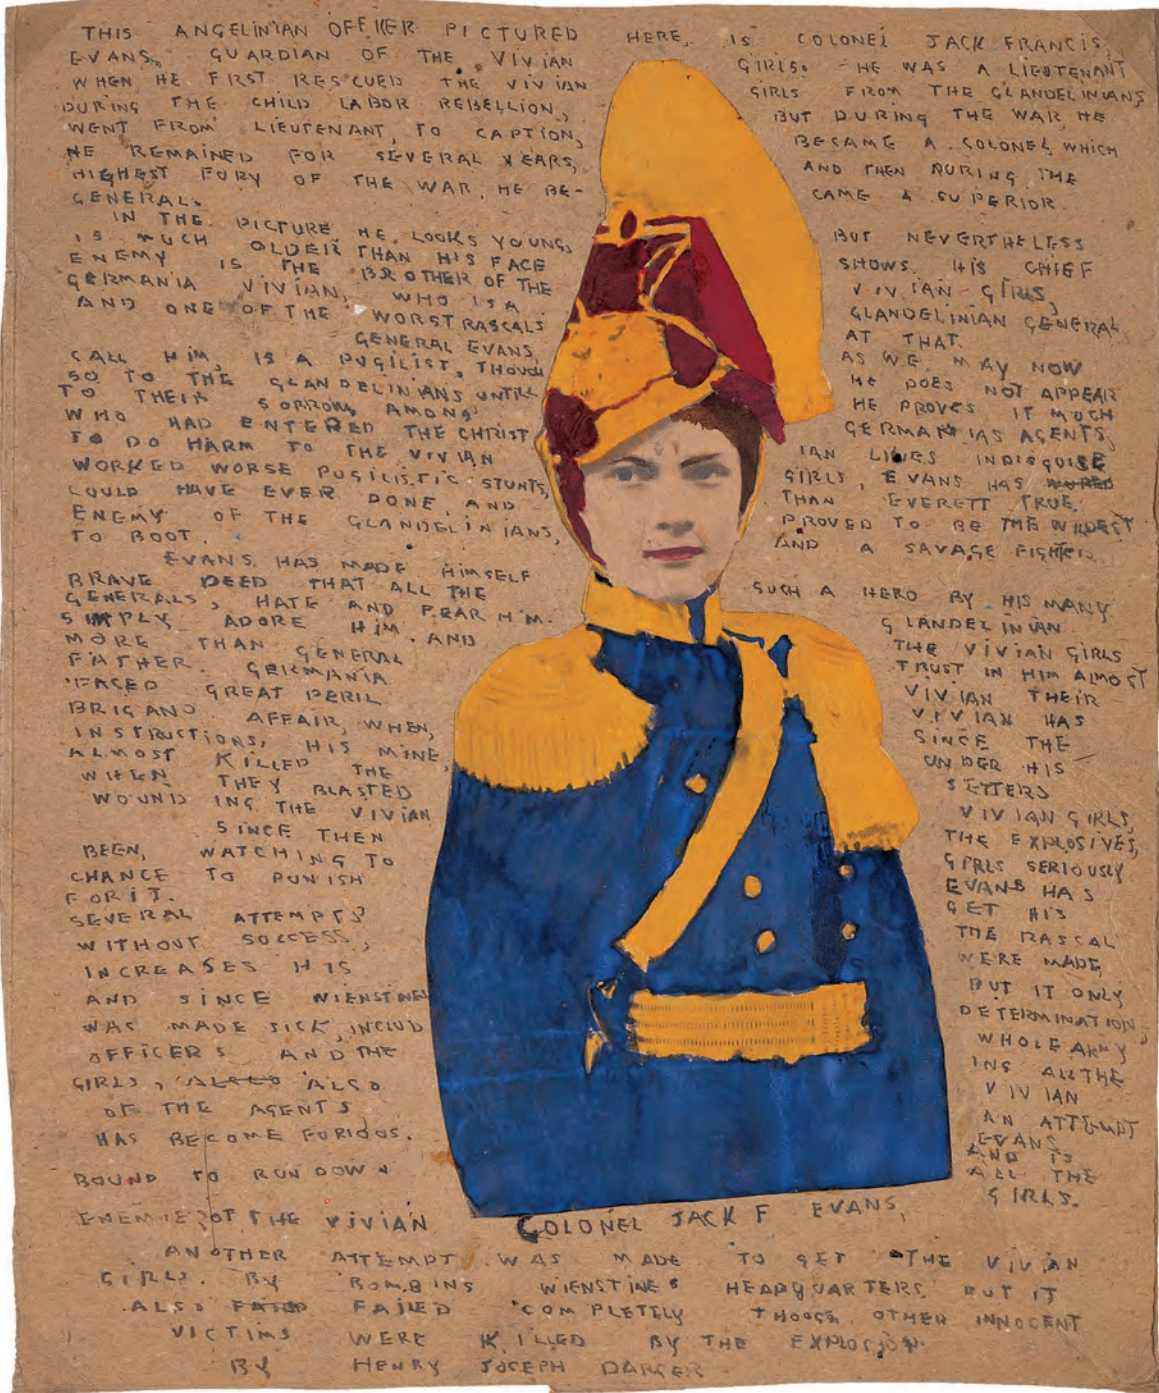 THIS ANGELINIAN OFFICER PICTURED HERE, IS COLONEL JACK FRANCIS,
EVANS, GUARDIAN OF THE VIVIAN GIRLS. HE WAS A LIEUTENANT
WHEN HE FIRST RESCUED THE VIVIAN GIRLS FROM THE GLANDELINIANS
DURING THE CHILD LABOR REBELLION, BUT DURING THE WAR, HE
WENT FROM LIEUTENANT, TO CAPTION, BECAME A COLONEL, WHICH
HE REMAINED FOR SEVERAL YEARS, AND THEN DURING THE
HIGHEST FURY OF THE WAR, HE BE- CAME A SUPERIOR
GENERAL.
IN THE PICTURE HE LOOKS YOUNG, BUT NEVERTHELESS
IS MUCH OLDER THAN HIS FACE SHOWS. HIS CHIEF
ENEMY IS THE BROTHER OF THE VIVIAN GIRLS,
GERMANIA VIVIAN, WHO IS A GLANDELINIAN GENERAL
AND ONE OF THE WORST RASCALS AT THAT.
GENERAL EVANS, AS WE MAY NOW
CALL HIM, IS A PUGILIST, THOUGH HE DOES NOT APPEAR
SO TO THE GLANDELINIANS UNTIL HE PROVES IT MUCH
TO THEIR SORROW, AMONG GERMANIAS AGENTS,
WHO HAD ENTERED THE CHRIST IAN LINES INDISGUISE
TO DO HARM TO THE VIVIAN GIRLS, EVANS HAS
WORKED WORSE PUGILISTIC STUNTS, THAN EVERETT TRUE.
COULD HAVE EVER DONE, AND PROVED TO BE THE WILDEST
ENEMY OF THE GLANDELINIANS, AND A SAVAGE FIGHTER
TO BOOT.
EVANS, HAS MADE HIMSELF SUCH A HERO BY HIS MANY
BRAVE DEED THAT ALL THE GLANDELINIAN
GENERALS, HATE AND FEAR HIM. THE VIVIAN GIRLS
SIMPLY ADORE HIM AND TRUST IN HIM ALMOST
MORE THAN GENERAL VIVIAN THEIR
FATHER. GERMANIA VIVIAN HAS
FACED GREAT PERIL SINCE THE
BRIGAND AFFAIR, WHEN, UNDER HIS
INSTRUCTIONS, HIS MINE, SETTERS
ALMOST KILLED THE VIVIAN GIRLS,
WHEN THEY BLASTED THE EXPLOSIVES,
WOUNDING THE VIVIAN GIRLS SERIOUSLY
SINCE THEN EVANS HAS
BEEN, WATCHING TO GET HIS
CHANCE TO PUNISH THE RASCAL
FOR IT.
SEVERAL ATTEMPTS WERE MADE
WITHOUT SOCCESS, BUT IT ONLY
INCREASES HIS DETERMINATION,
AND SINCE WIENSTINES WHOLE ARMY
WAS MADE SICK, INCLUD ING ALL THE
OFFICERS AND THE VIVIAN
GIRLS, ALSO AN ATTEMPT
OF THE AGENTS EVANS
HAS BECOME FURIOUS. AND IS
BOUND TO RUN DOWN ALL THE
ENEMIES OF THE VIVIAN GIRLS.
COLONEL JACK F EVANS,
ANOTHER ATTEMPT WAS MADE TO GET THE VIVIAN
GIRLS. BY BOMBING WIENSTINES HEADQUARTERS. BUT IT
ALSO FAILED COMPLETELY THOUGH OTHER INNOCENT
VICTIMS WERE KILLED BY THE EXPLOSION.
BY HENRY JOSEPH DARGER